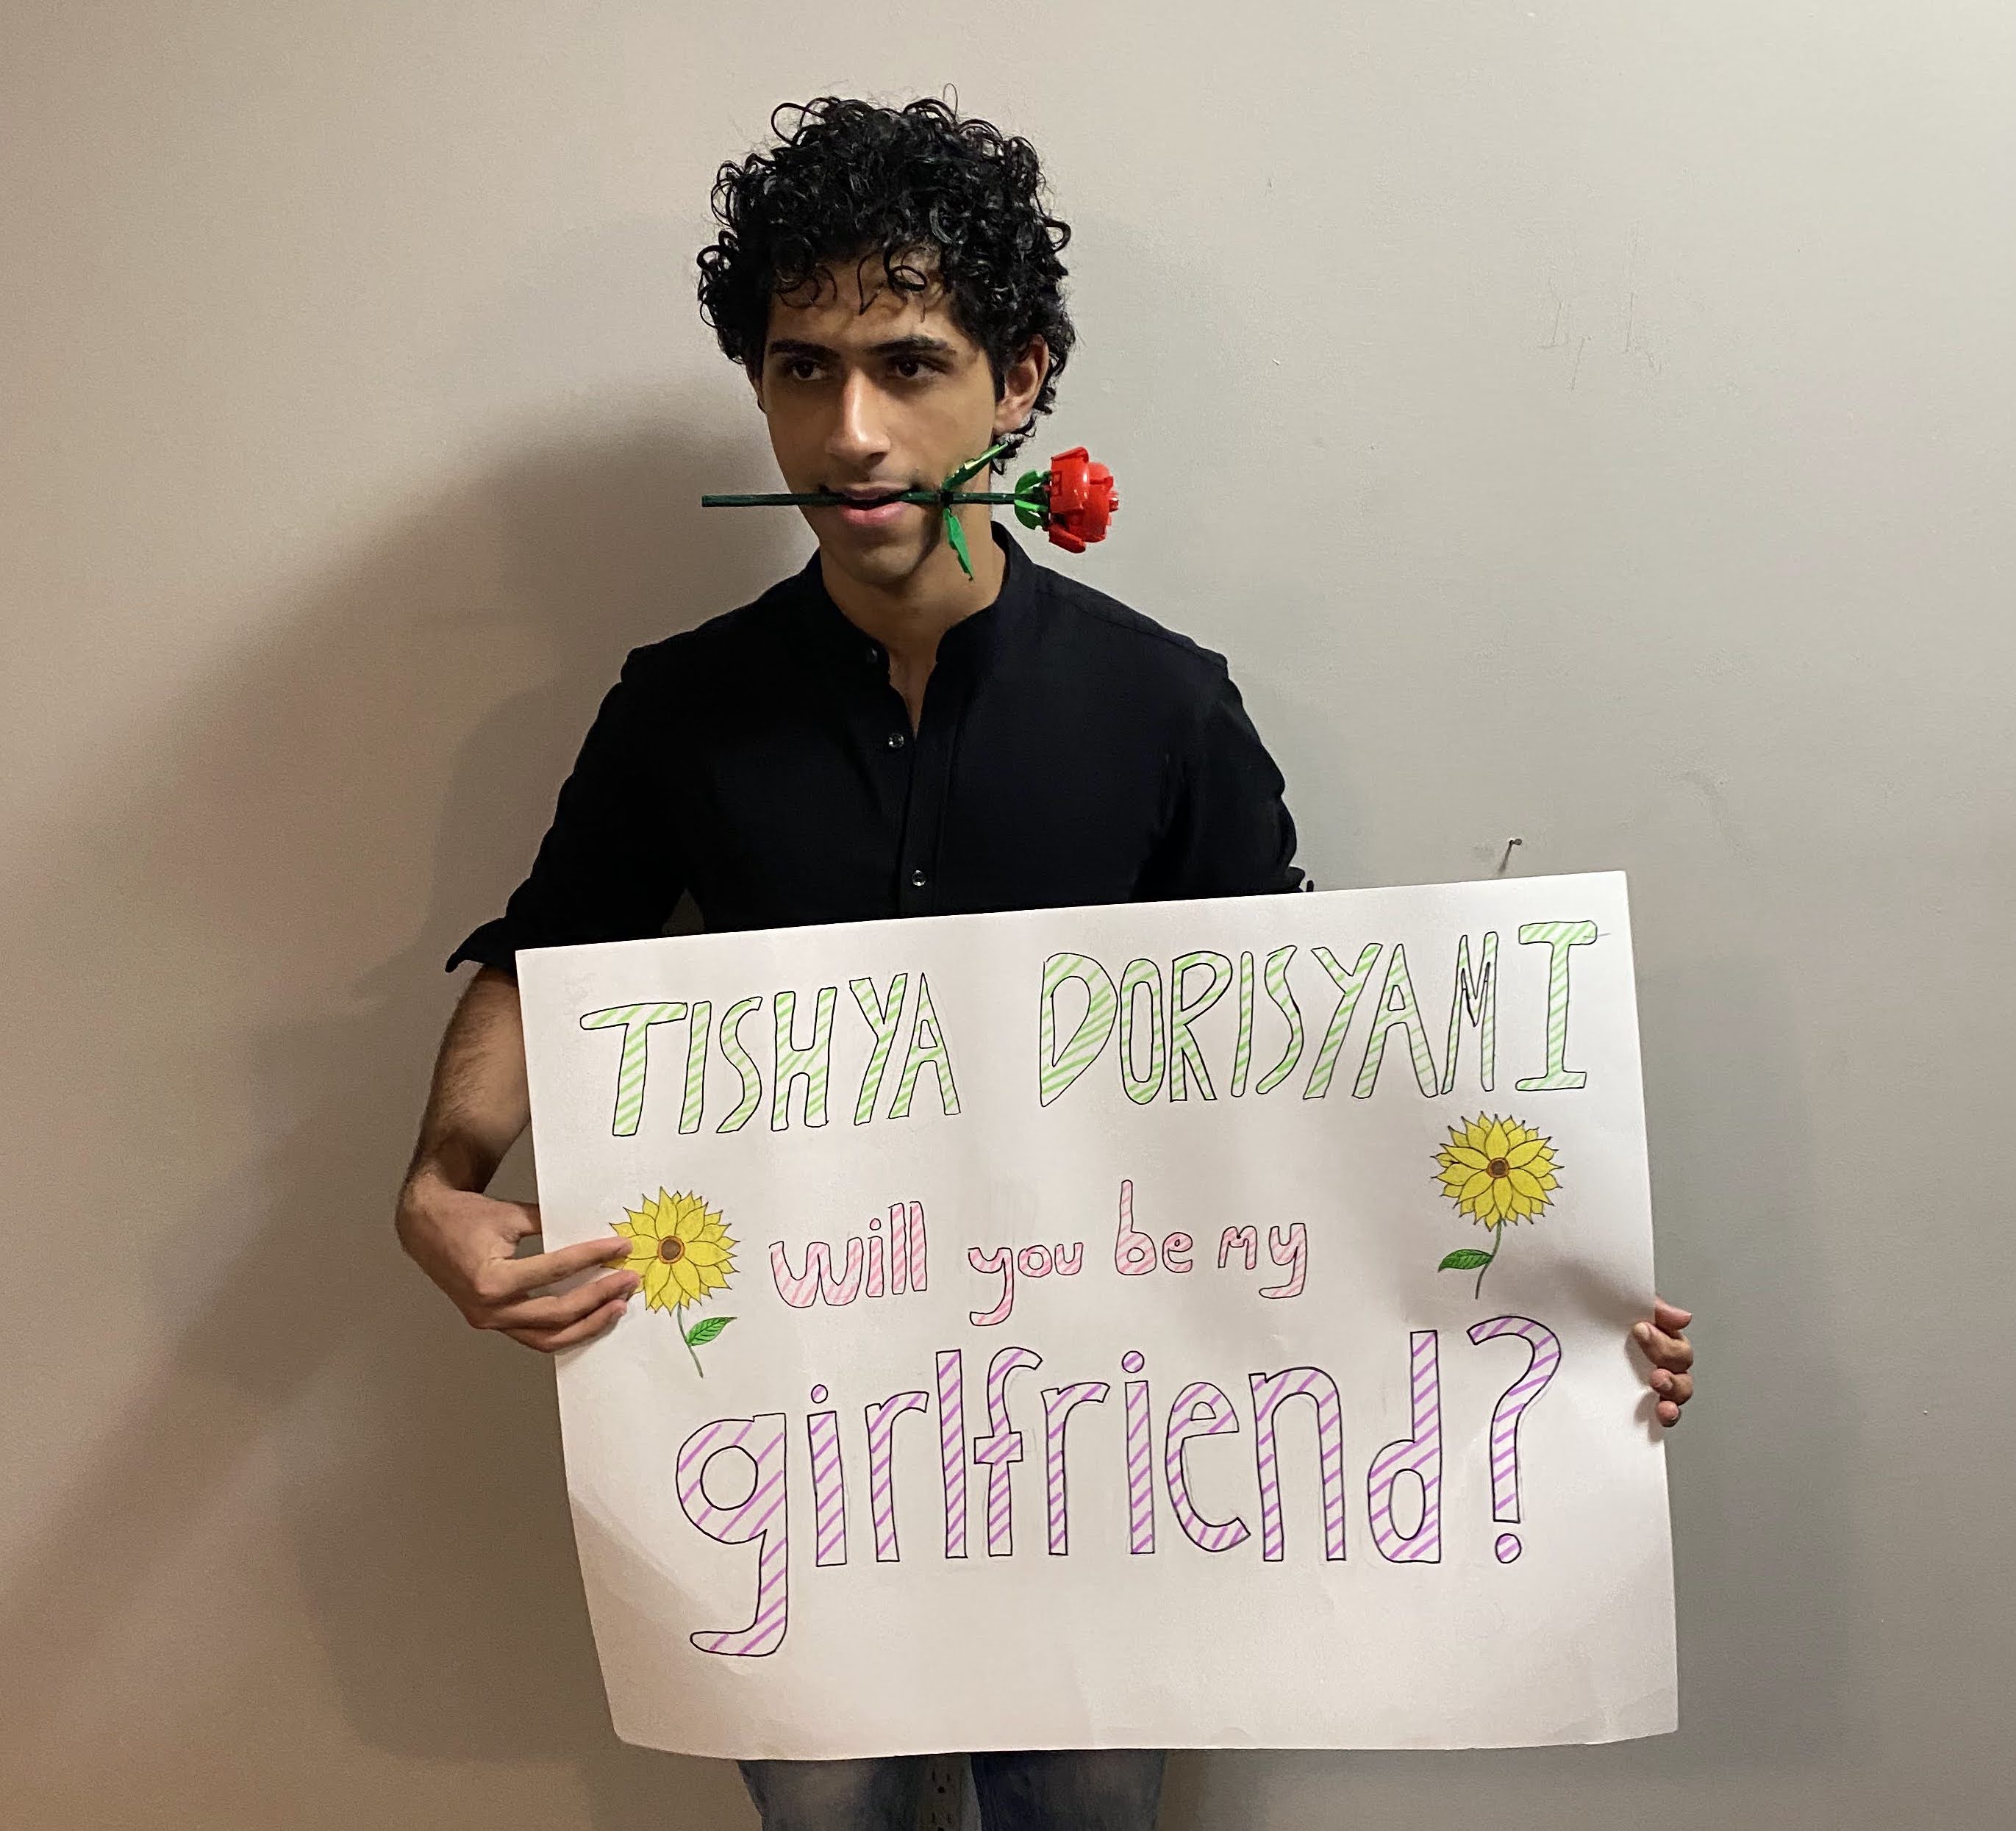 TISHYA DORISYAMI
will you be my
girlfriend?